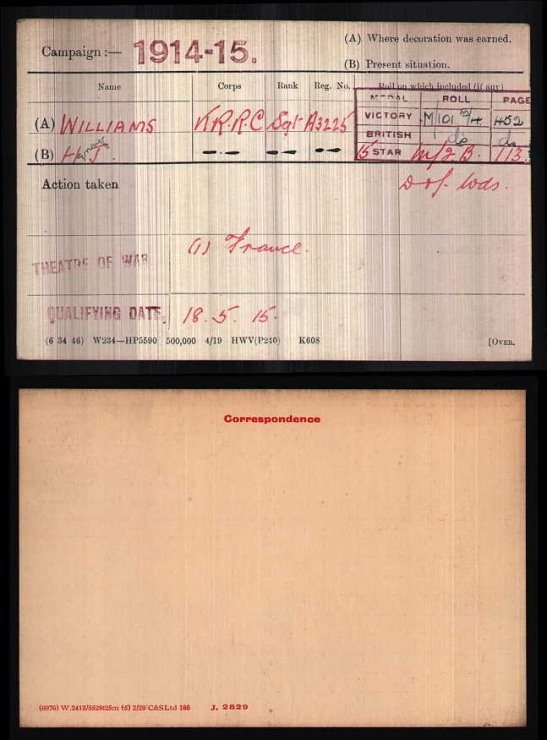 Campaign :— 1914-15.
(A) Where decoration was earned.
(B) Present situation.
Name Corps Rank Reg. No. Roll on which included (if any)
MEDAL ROLL PAGE
(A) WILLIAMS K.R.R.C Sgt A3225
VICTORY 452
BRITISH do do
(B) H.J.
15 STAR 113.
Action taken
D of Wds.
THEATRE OF WAR. (1) France.
QUALIFYING DATE. 18. 5. 15.
(6 34 46) W234—HP5590 500,000 4/19 HWV(P240) K608 [OVER.
Correspondence
(6976) W.2413/ 2/29 C&S Ltd 186 J. 2829